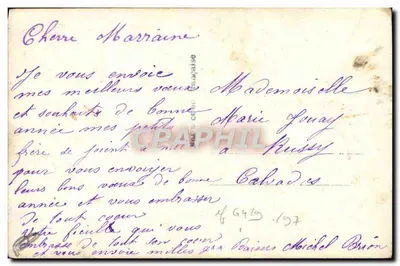 Cherre Marraine
Je vous envoie
mes meilleurs vœux
et souhaits de bonne
année mes petits
frère se joint a moi
pour vous envoyer
leurs bons vœux de bonne
année et vous embrasser
de tout cœur
Votre fieulle qui vous
embrasse de tout son cœur
et vous envoie milles Baisers Michel Brion
Mademoiselle
Marie Jouay
a Russy
Calvados
CARAPHIL